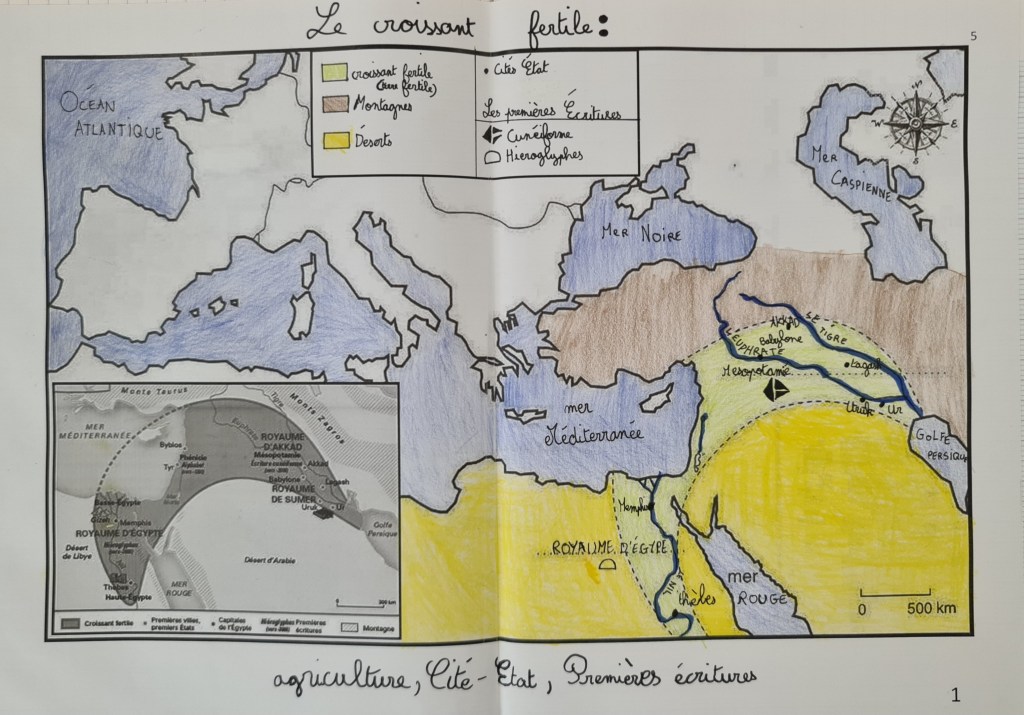 Le croissant fertile:
5
croissant fertile
(terre fertile)
Montagnes
Déserts
• Cités Etat
Les premières Écritures
Cunéiforme
Hiéroglyphes
OCÉAN
ATLANTIQUE
MER NOIRE
MER
CASPIENNE
W
E
S
AKKAD
LE TIGRE
Babylone
L'EUPHRATE
Lagash
Mesopotamie
Uruk
Ur
GOLFE
PERSIQUE
mer
Méditerranée
Memphis
ROYAUME D'ÉGYPE
NIL
thèbes
mer
ROUGE
0 500 km
Monts Taurus
Monts Zagros
MER
MÉDITERRANÉE
Tigre
Euphrate
Byblos
Phénicie
Alphabet
Tyr
ROYAUME
D'AKKAD
Mésopotamie
Écriture cunéiforme
Akkad
Babylone
Lagash
ROYAUME
DE SUMER
Uruk
Ur
Golfe
Persique
Basse-Égypte
Gizeh
Memphis
ROYAUME D'ÉGYPTE
Hiéroglyphes
Désert
de Libye
Désert d'Arabie
MER
ROUGE
Thèbes
Haute-Égypte
300 km
Croissant fertile
Premières villes,
premiers États
Capitales
de l'Égypte
Hiéroglyphes Premières
écritures
Montagne
agriculture, Cité-Etat, Premières écritures
1